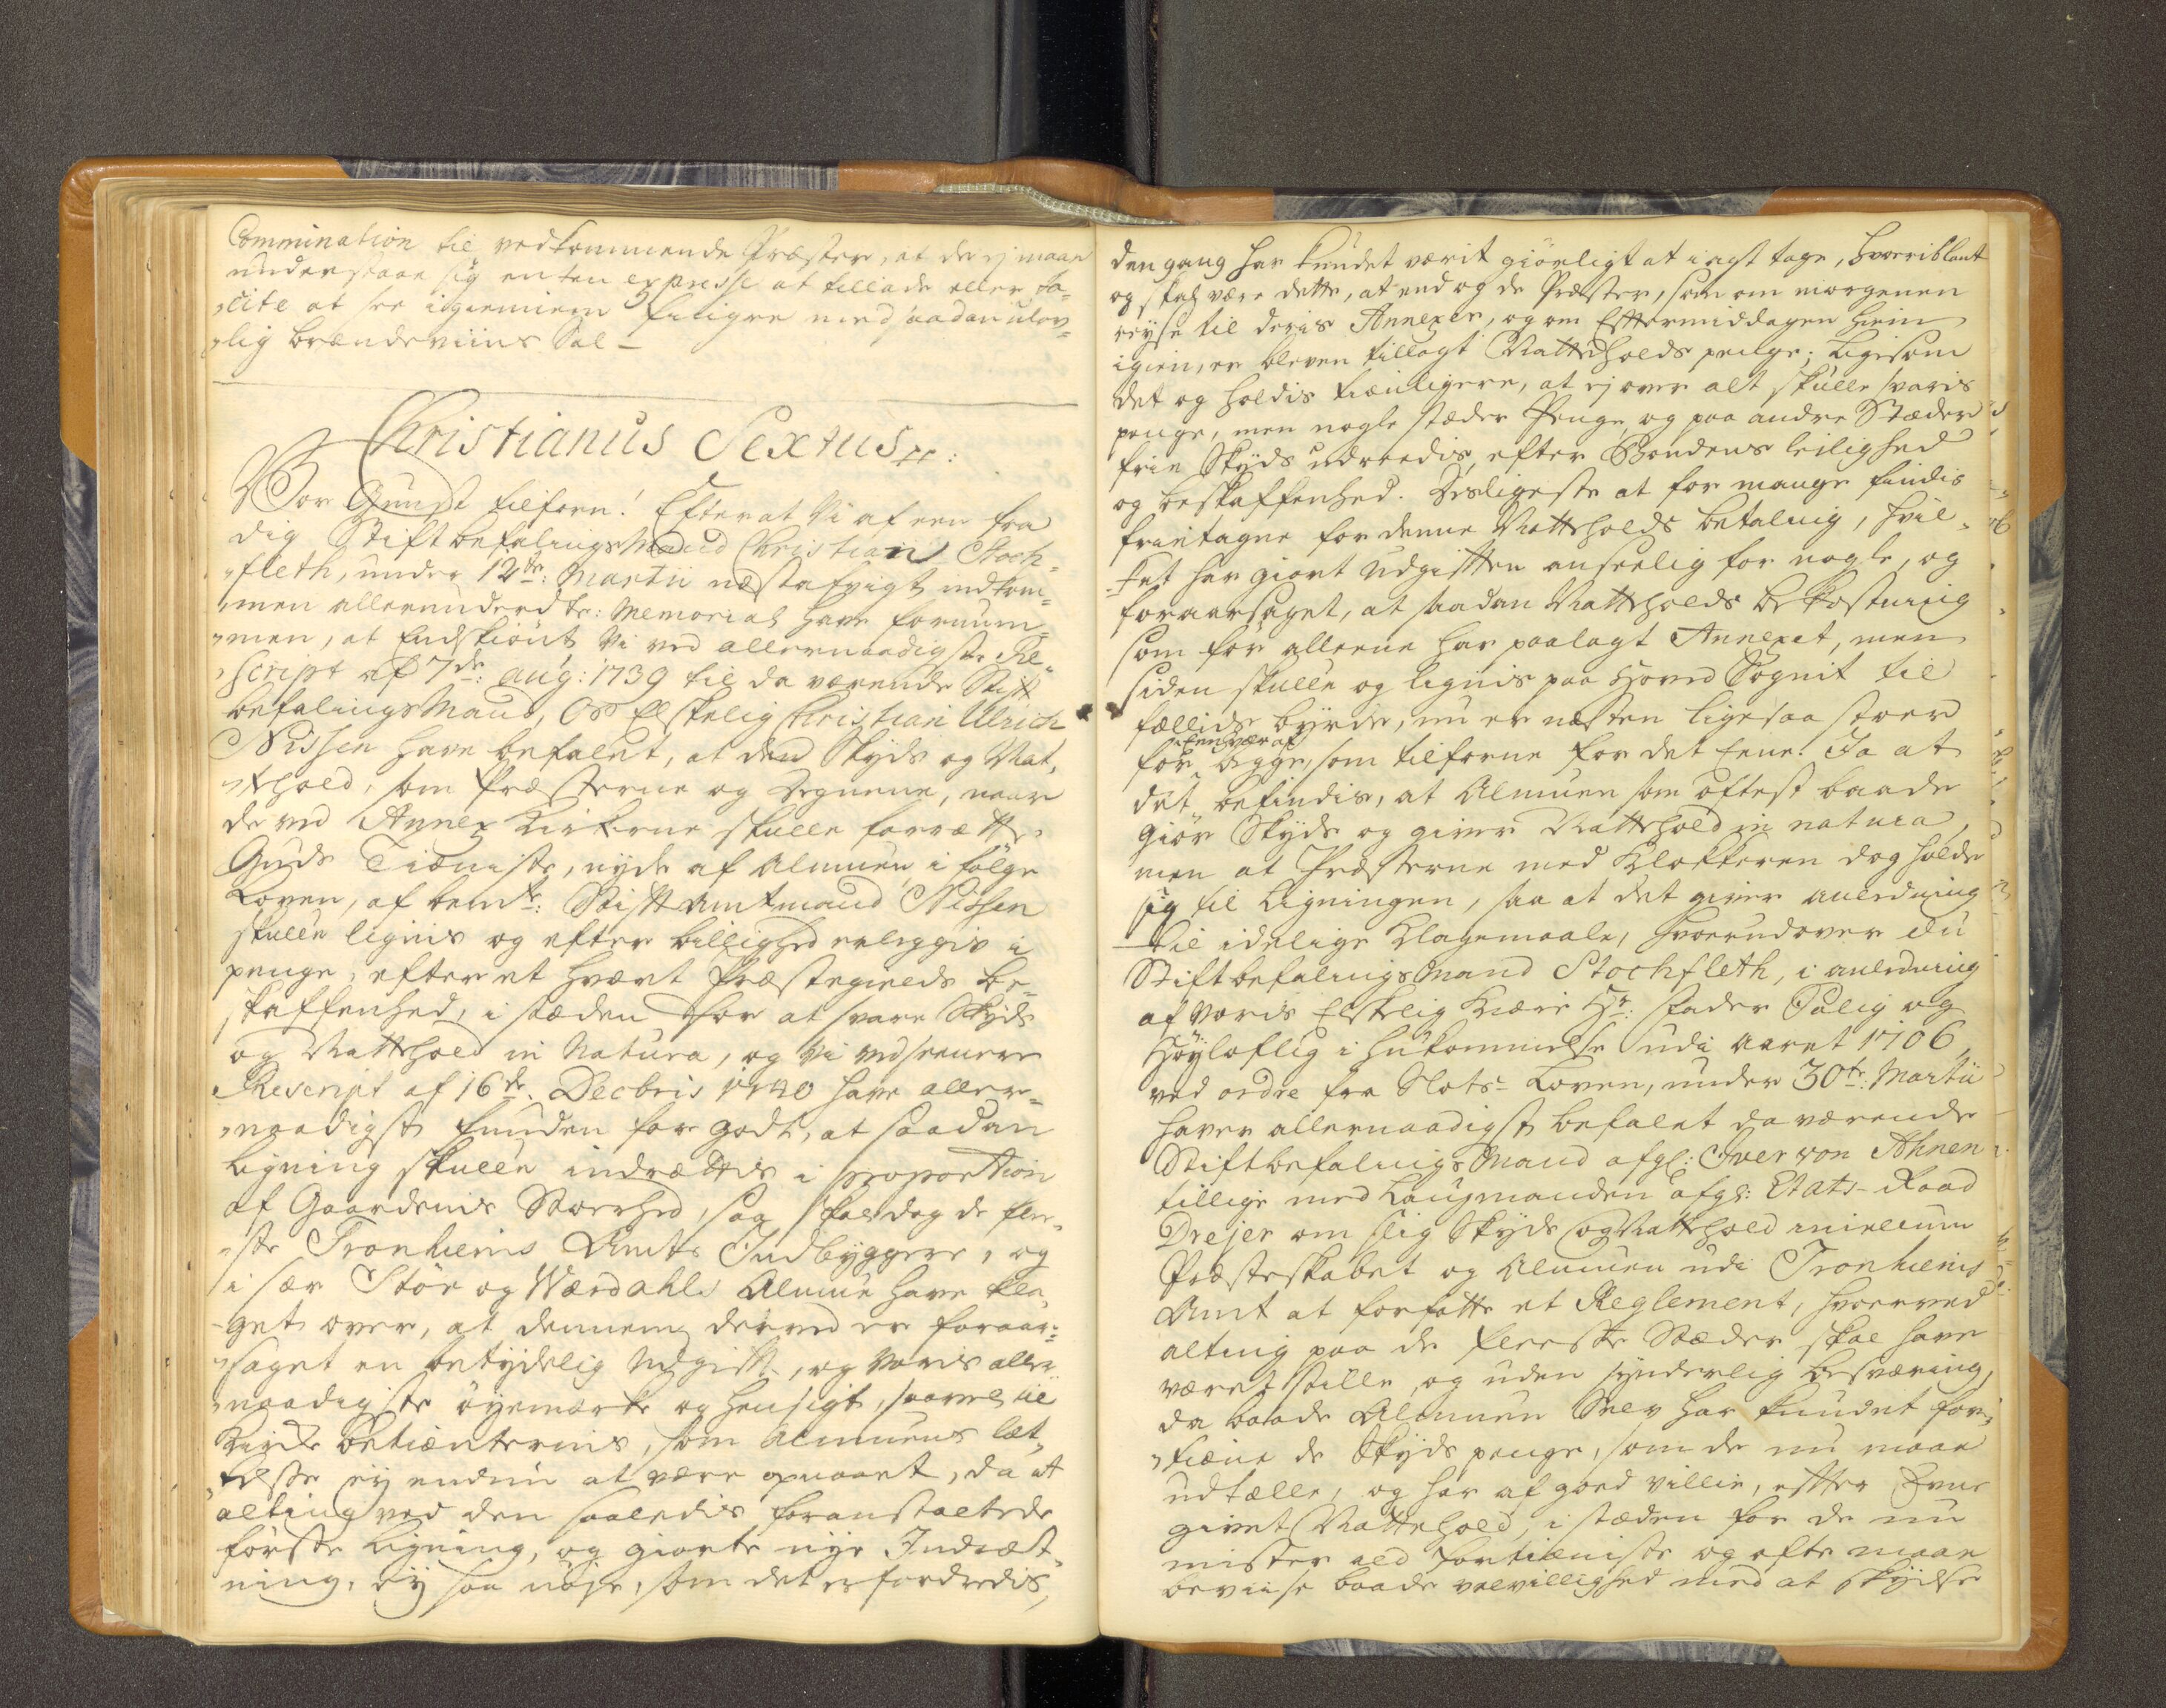 Commination til vedkommende Præster, at de ej maae
understaae sig enten expresse at tillade eller ta-
„cite at see igiennem fingre med saadan ulov-
„lig brændeviins Sal –
Christianus Sextus pp:
Vor Gunst tilforn! Efterat Vi af een fra
dig Stiftbefalings Mand Christian Stoch-
„fleth, under 12te: Martii næstafvigt indkom-
„men allerunderd te: Memorial have fornum-
„men, at Endskiönt Vi ved allernaadigste Re-
„script af 7de: Aug: 1739 til da værende Stift
befalings Mand, Os Elskelig Christian Ulrich
Nissen have befalet, at den Skyds og Nat-
„thold, som Præsterne og Degnene, naar
de ved Annex Kirkerne skulle forrætte
Guds Tieniste, nyde af Almuen i fölge
Loven, af bemte: Stiftamtmand Nissen
skulle lignis og efter billighed erleggis i
penge, efter et hvært Præstegields be-
skaffenhed, i stæden for at svare Skyds
og Nattehold in Natura, og Vi ved seenere
Rescript af 16de. Decbris 1740 have aller-
„naadigst funden for godt, at saadan
Ligning skulle indrættis i proportion
af Gaardenis Storhed, saa skal dog de fle-
„ste Tronhiems Amts Indbyggere, og
i sær Stör og Wærdahls Almue have kla-
„get over, at dennem derved er foraar-
„saget en betydelig Udgift, og Voris aller
„naadigste öyemærke og hensigt, saavel til
Kirke betiænternis, som Almuens let-
„telse ey endnu at være opnaaet, da at
alting ved den saaledis foranstaltede
förste Ligning, og giorte nye Indræt-
ning, ey saa nöje, som det erfordredis,
den gang har kundet værit giörligt at i agt tage, hvoriblant
og skal være dette, at end og de Præster, som om morgenen
reyse til deris Annexer, og om Eftermiddagen hiem
igien, er bleven tillagt Nattholds penge; ligesom
det og holdis tienligere, at ej over alt skulle svaris
penge, men nogle stæder Penge, og paa andre Stæder
frie Skyds udreedis, efter Bondens leilighed
og beskaffenhed. Desligeste at for mange findis
frietagne for denne Nattholds betaling, hvil-
„ket har giort Udgiften anseelig for nogle, og
foraarsaget, at saadan Nattholds bekostning
som för alleene har paalagt Annexet, men
siden skulle og lignis paa Hoved Sognit til
fællids byrde, nu er næsten ligesaa stoer
for enhver af begge, som tilforne for det Eene. Ja at
det befindis, at Almuen som oftest baade
giör Skyds og giver Natthold in natura,
men at Præsterne med Klokkeren dog holde
sig til Ligningen, saa at det giver anledning
til idelige Klagemaale, hvorudover du
Stiftbefalings Mand Stochfleth, i anledning
af Voris Elskelig Kiære Hr: Fader Salig og
Höyloflig i hukommelse udi Aaret 1706
ved ordre fra Slots- Loven, under 30te: Martii
haver allernaadigst befalet da værende
Stiftbefalings Mand afgl: Iver von Ahnen
tillige med Laugmanden afgl: Etats-Raad
Drejer om slig Skyds og Natthold imellum
Præsteskabet og Almuen udi Tronhiems
Amt at forfatte et Reglement, hvorved
alting paa de fleeste Stæder skal have
været stille, og uden synderlig besværing,
da baade Almuen Selv har kundet for-
„tiene de Skyds penge, som de nu maae
udtælle, og har af goed villie, efter Evne
givet Nattehold, i stæden for de nu
mister all fortieniste og ofte maae
beviise baade velvillighed med at skydse